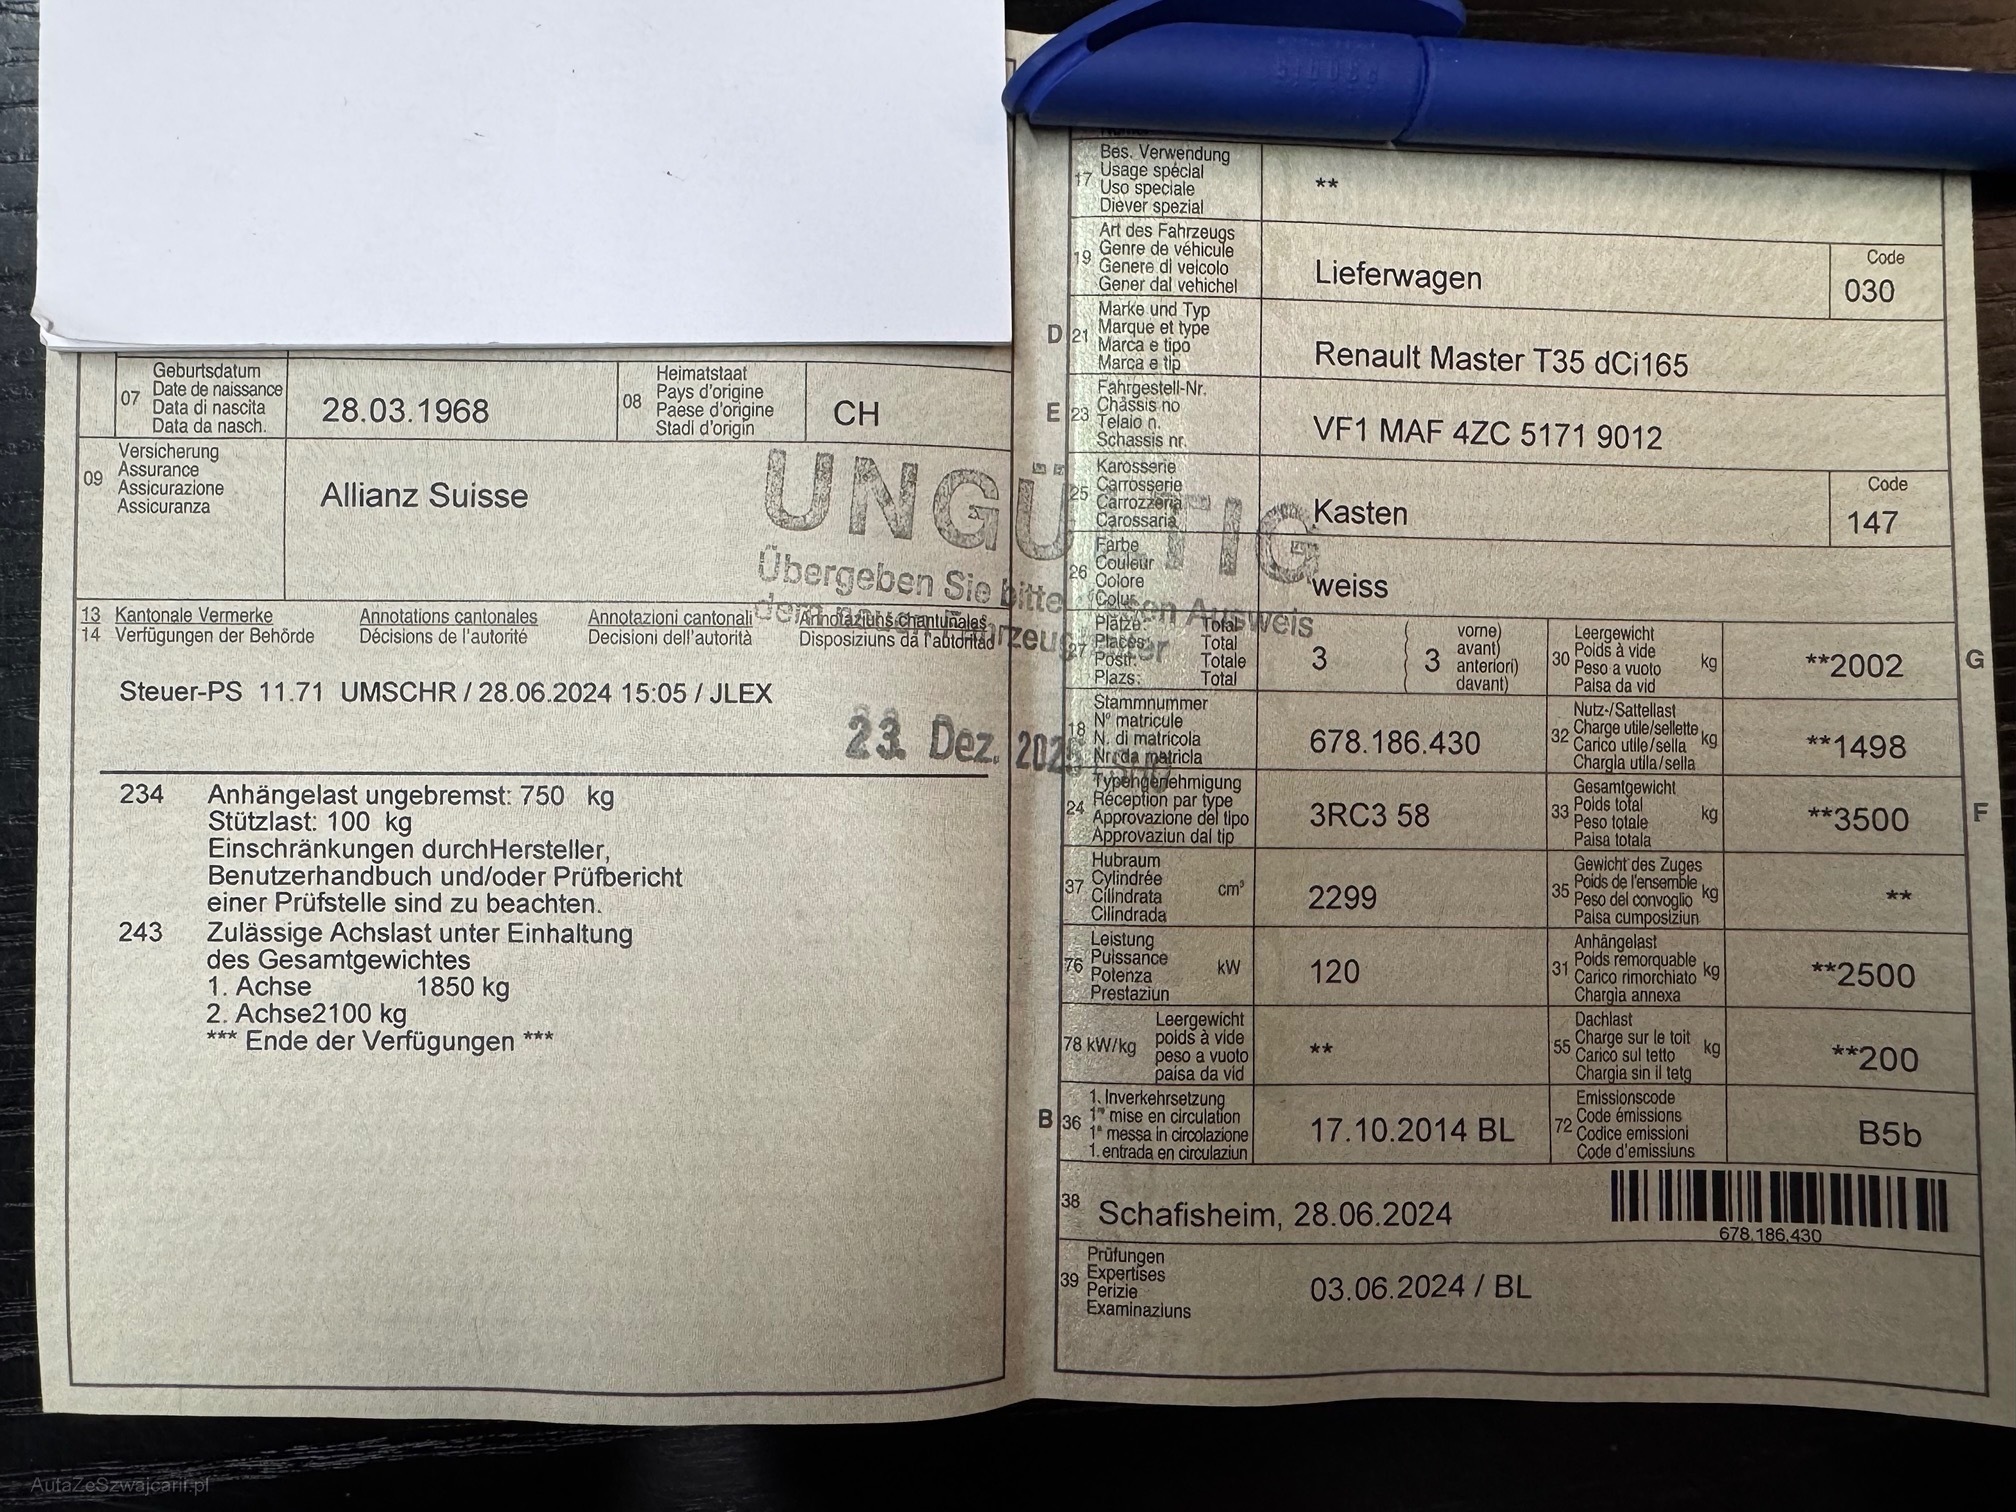 07 Geburtsdatum
Date de naissance
Data di nascita
Data da nasch.
28.03.1968
08 Heimatstaat
Pays d'origine
Paese d'origine
Stadi d'origin
CH
09 Versicherung
Assurance
Assicurazione
Assicuranza
Allianz Suisse
UNGÜLTIG
Übergeben Sie bitte Ausweis
dem
13 Kantonale Vermerke Annotations cantonales Annotazioni cantonali Annotaziuns chantunalas
14 Verfügungen der Behörde Décisions de l'autorité Decisioni dell'autorità Disposiziuns da l'autoritad
Steuer-PS 11.71 UMSCHR / 28.06.2024 15:05 / JLEX
23. Dez.
234 Anhängelast ungebremst: 750 kg
Stützlast: 100 kg
Einschränkungen durchHersteller,
Benutzerhandbuch und/oder Prüfbericht
einer Prüfstelle sind zu beachten.
243 Zulässige Achslast unter Einhaltung
des Gesamtgewichtes
1. Achse 1850 kg
2. Achse2100 kg
*** Ende der Verfügungen ***
17 Bes. Verwendung
Usage spécial
Uso speciale
Diever spezial
**
19 Art des Fahrzeugs
Genre de véhicule
Genere di veicolo
Gener dal vehichel
Lieferwagen
Code
030
D 21 Marke und Typ
Marque et type
Marca e tipo
Marca e tip
Renault Master T35 dCi165
E 23 Fahrgestell-Nr.
Châssis no
Telaio n.
Schassis nr.
VF1 MAF 4ZC 5171 9012
25 Karosserie
Carrosserie
Carrozzeria
Carossaria
Kasten
Code
147
26 Farbe
Couleur
Colore
Colur
weiss
27 Plätze: Total
Places: Total
Posti: Totale
Plazs: Total
3 ( 3 vorne)
avant)
anteriori)
davant)
30 Leergewicht
Poids à vide
Peso a vuoto
Paisa da vid
kg
**2002
G
18 Stammnummer
N° matricule
N. di matricola
Nr. da matricla
678.186.430
32 Nutz-/Sattellast
Charge utile/sellette
Carico utile/sella
Chargia utila/sella
kg
**1498
24 Typengenehmigung
Réception par type
Approvazione del tipo
Approvaziun dal tip
3RC3 58
33 Gesamtgewicht
Poids total
Peso totale
Paisa totala
kg
**3500
F
37 Hubraum
Cylindrée
Cilindrata
Cilindrada
cm³
2299
35 Gewicht des Zuges
Poids de l'ensemble
Peso del convoglio
Paisa cumposiziun
kg
**
76 Leistung
Puissance
Potenza
Prestaziun
kW
120
31 Anhängelast
Poids remorquable
Carico rimorchiato
Chargia annexa
kg
**2500
78 kW/kg Leergewicht
poids à vide
peso a vuoto
paisa da vid
**
55 Dachlast
Charge sur le toit
Carico sul tetto
Chargia sin il tetg
kg
**200
B 36 1. Inverkehrsetzung
1re mise en circulation
1a messa in circolazione
1. entrada en circulaziun
17.10.2014 BL
72 Emissionscode
Code émissions
Codice emissioni
Code d'emissiuns
B5b
38 Schafisheim, 28.06.2024
678.186.430
39 Prüfungen
Expertises
Perizie
Examinaziuns
03.06.2024 / BL
AutaZeSzwajcarii.pl